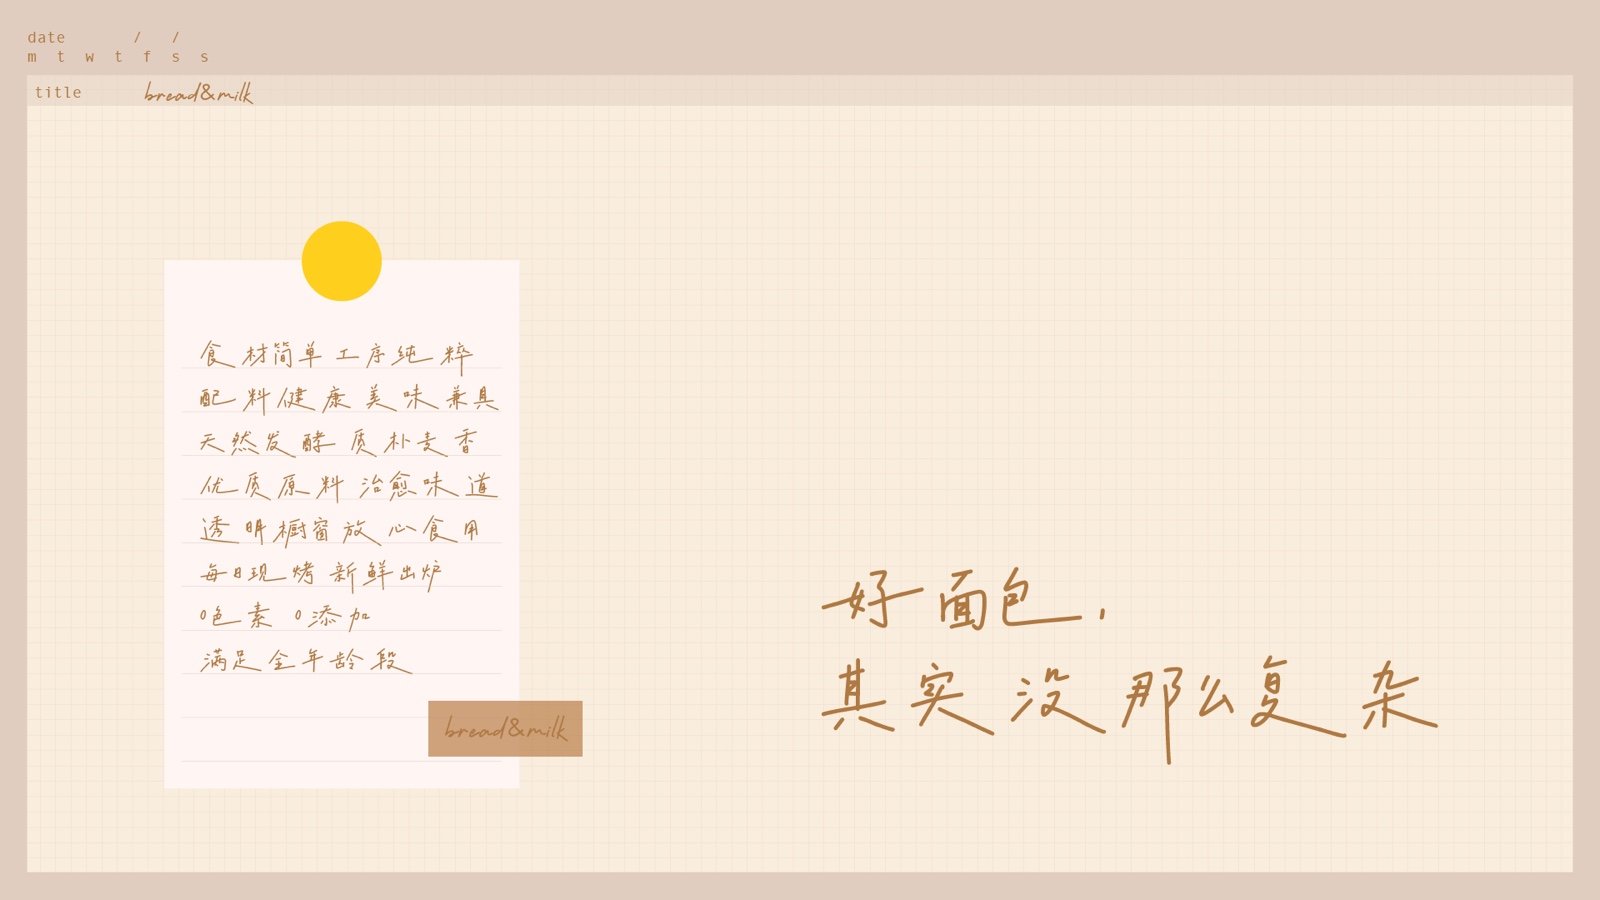 date / /
m t w t f s s
title bread&milk
食材简单 工序纯粹
配料健康 美味兼具
天然发酵 质朴麦香
优质原料 治愈味道
透明橱窗 放心食用
每日现烤 新鲜出炉
0色素 0添加
满足全年龄段
bread&milk
好面包,
其实没那么复杂